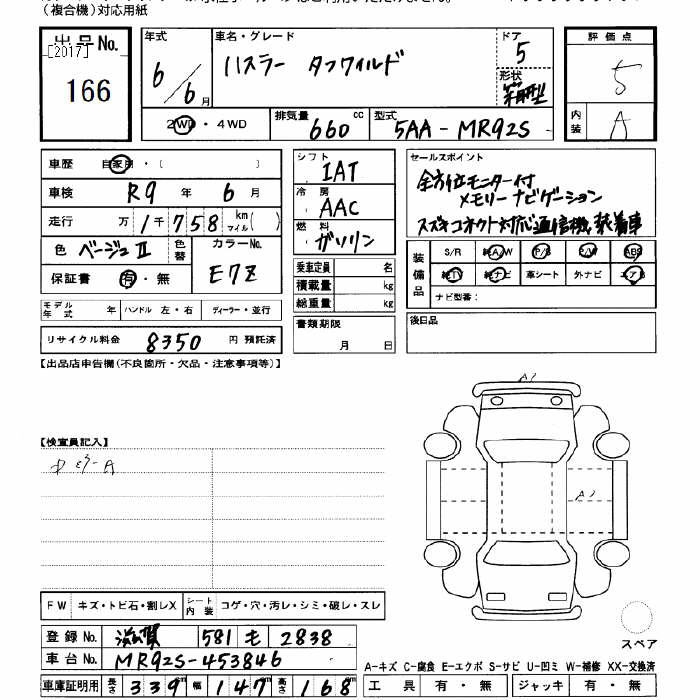 （複合機）対応用紙
出品No.
［2017］
166
年式
6/6月
車名・グレード
ハスラー タフワイルド
ドア
5
形状
2WD・4WD
排気量 660 cc
型式 5AA-MR92S
評価点
5
内装
A
車歴 自家用・（ ）
車検 R9年 6月
走行 万1千758 km マイル（ ）
色 ベージュII 色替
カラーNo.
E7Z
保証書 有・無
モデル年式 年 ハンドル 左・右 ディーラー・並行
リサイクル料金 8350 円 預託済
シフト
IAT
冷房
AAC
燃料
ガソリン
乗車定員 名
積載量 kg
総重量 kg
書類期限
月 日
セールスポイント
全方位モニター付
メモリーナビゲーション
スズキコネクト対応通信機装着車
装備品
S/R 純A/W P/S P/W ABS
純TV 純ナビ 革シート 外ナビ エアB
ナビ型番：
後日品
【出品店申告欄（不良箇所・欠品・注意事項等）】
【検査員記入】
A1
A1
FW キズ・トビ石・割レX シート内装 コゲ・穴・汚レ・シミ・破レ・スレ
登録No. 滋賀 581 モ 2838
車台No. MR92S-453846
車庫証明用 長さ 339cm 幅 147cm 高さ 168cm
スペア
A-キズ C-腐食 E-エクボ S-サビ U-凹ミ W-補修 XX-交換済
工具 有・無 ジャッキ 有・無